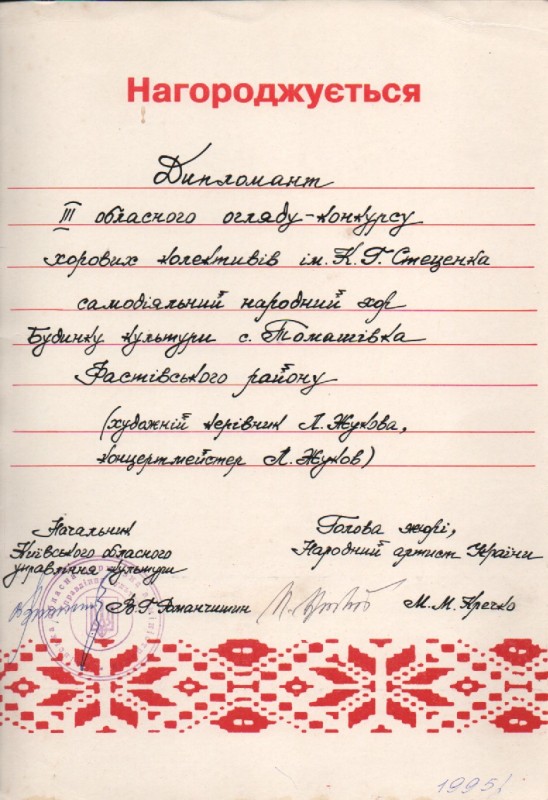 Нагороджується
Дипломант
III обласного огляду-конкурсу
хорових колективів ім. К. Г. Стеценка
самодіяльний народний хор
Будинку культури с. Томашівка
Фастівського району
(художній керівник Л. Жукова,
концертмейстер Л. Жуков)
Начальник
Київського обласного
управління культури
В. Г. Романчишин
Голова жюрі,
Народний артист України
М. М. Кречко
1995